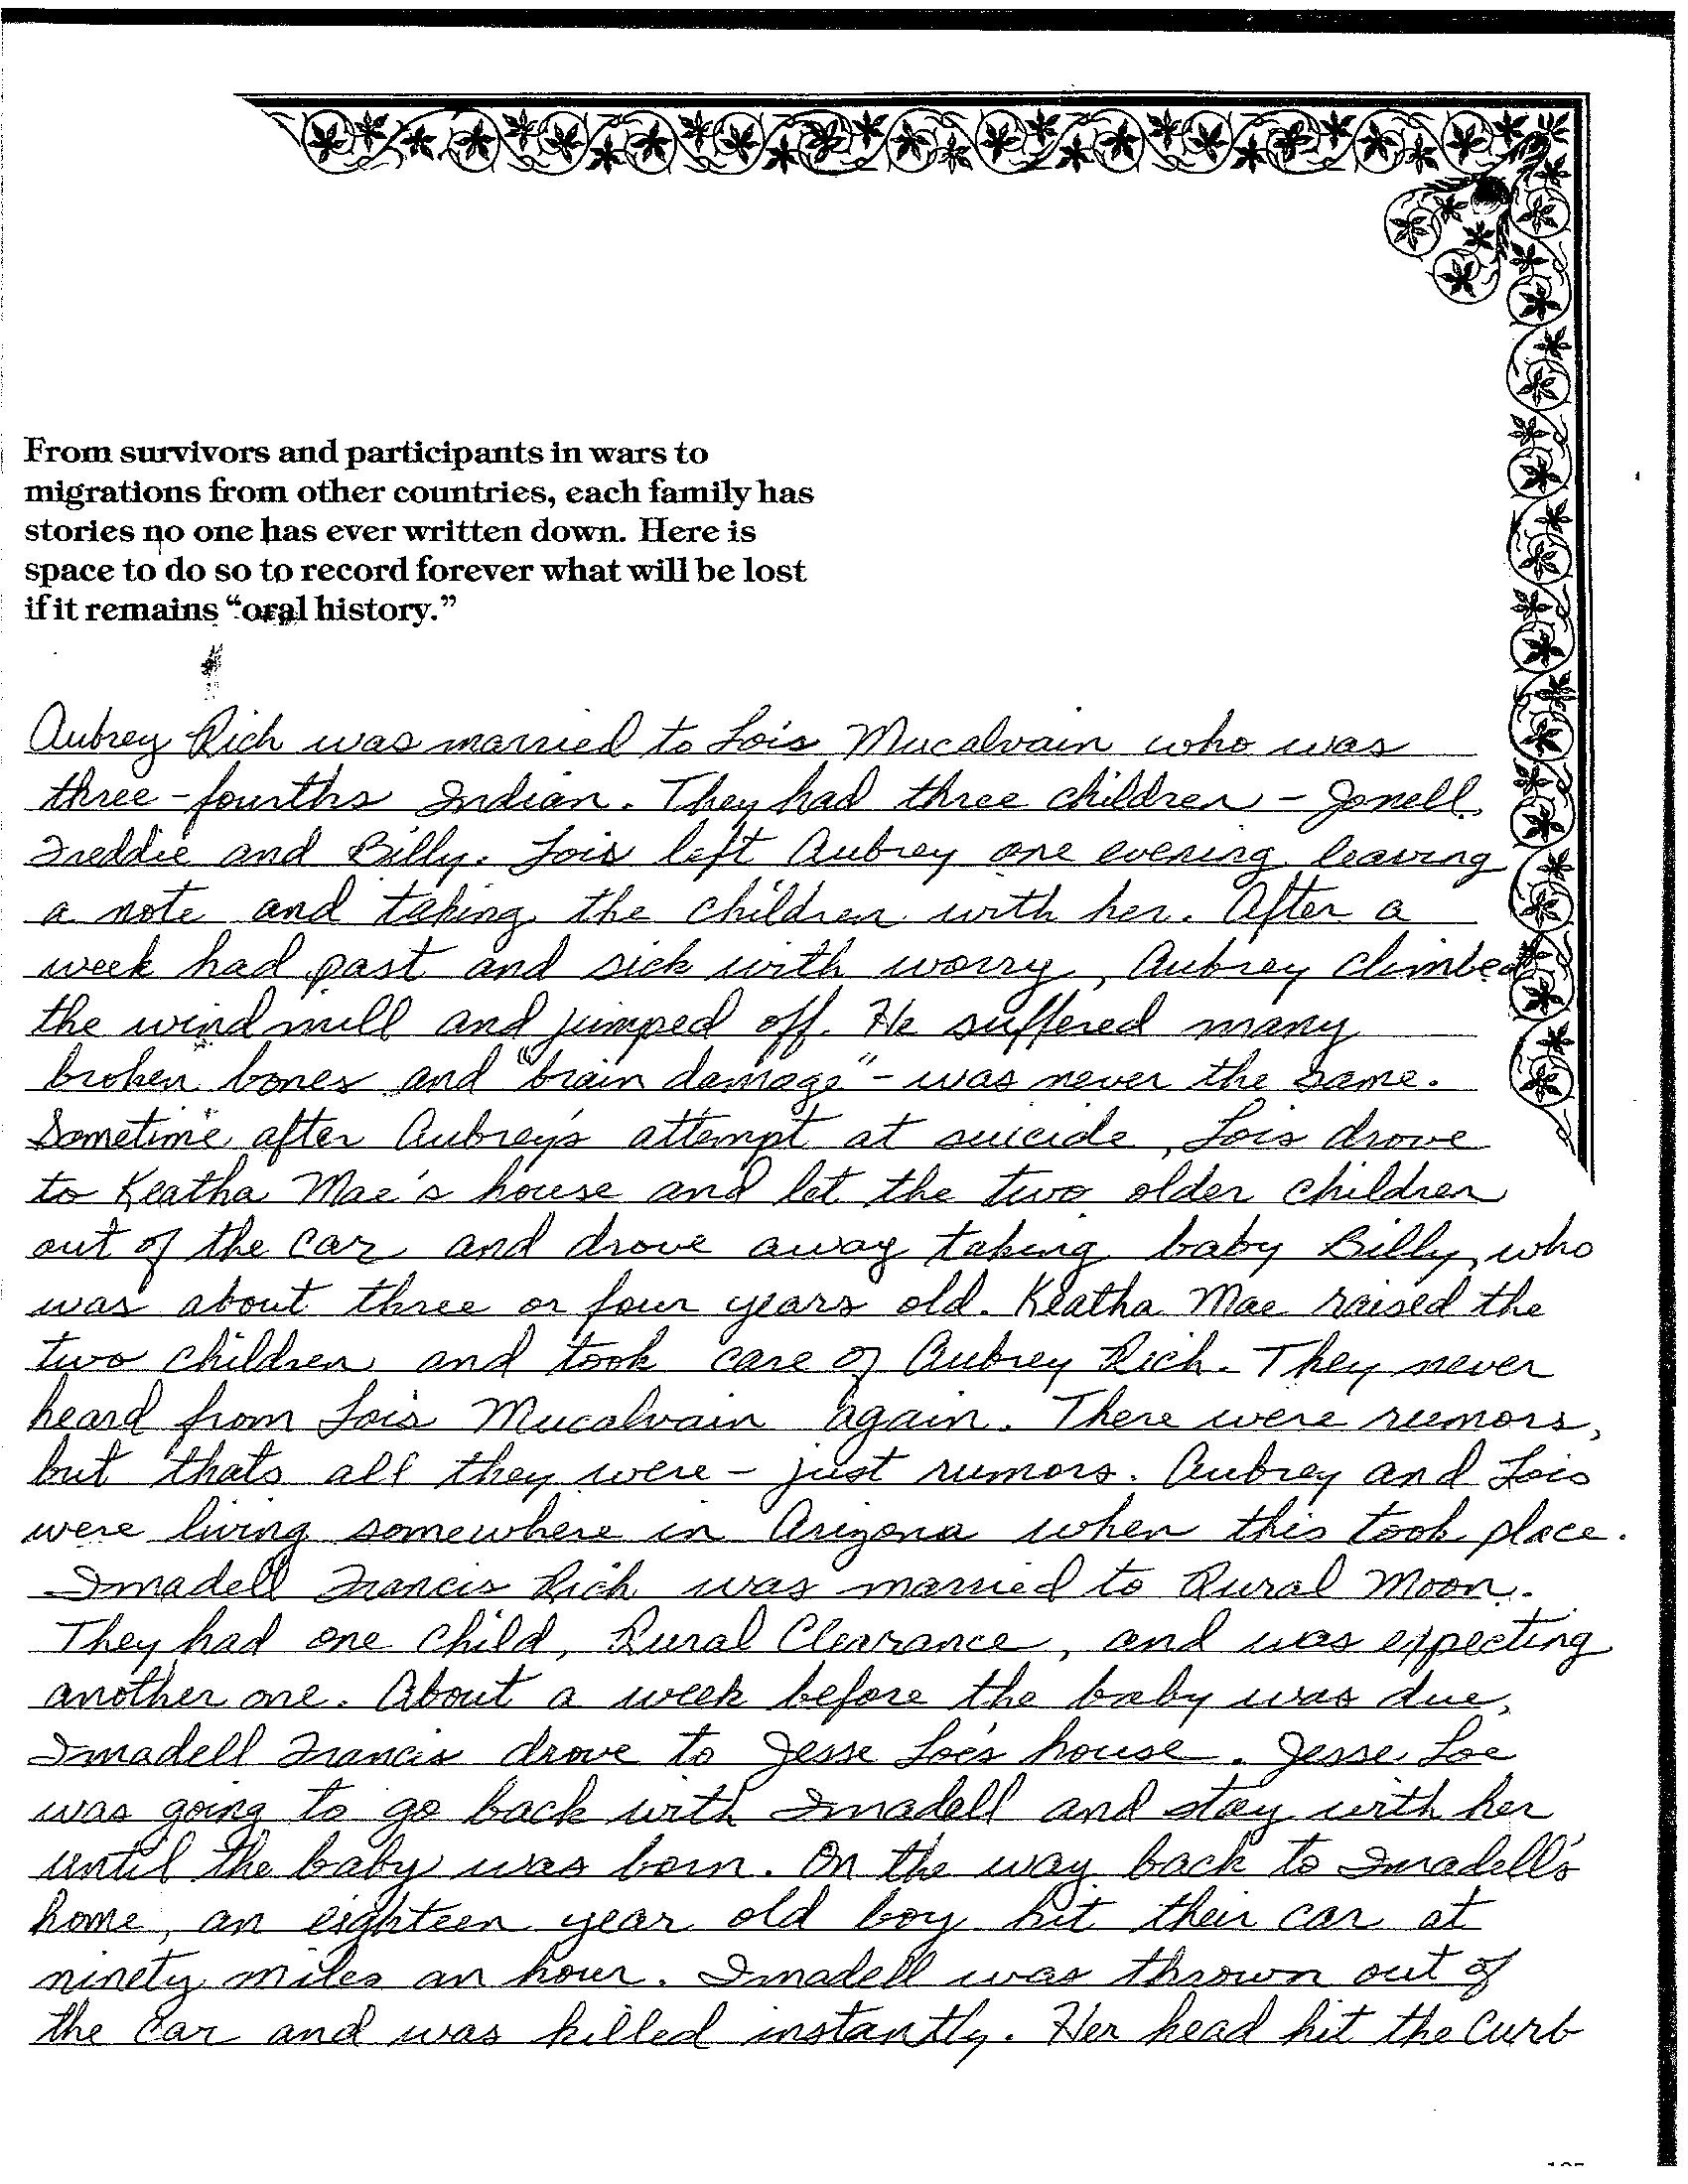 From survivors and participants in wars to
migrations from other countries, each family has
stories no one has ever written down. Here is
space to do so to record forever what will be lost
if it remains “oral history.”
Aubrey Rich was married to Lois Mucalvain who was
three-fourths Indian. They had three children - Jonell,
Freddie and Billy. Lois left Aubrey one evening leaving
a note and taking the children with her. After a
week had past and sick with worry, Aubrey climbed
the windmill and jumped off. He suffered many
broken bones and "brain damage" - was never the same.
Sometime after Aubrey's attempt at suicide, Lois drove
to Keatha Mae's house and let the two older children
out of the car and drove away taking baby Billy, who
was about three or four years old. Keatha Mae raised the
two children and took care of Aubrey Rich. They never
heard from Lois Mucalvain again. There were rumors,
but thats all they were - just rumors. Aubrey and Lois
were living somewhere in Arizona when this took place.
Imadell Francis Rich was married to Rural Moon.
They had one child, Rural Clearance, and was expecting
another one. About a week before the baby was due,
Imadell Francis drove to Jesse Loe's house. Jesse Loe
was going to go back with Imadell and stay with her
until the baby was born. On the way back to Imadell's
home, an eighteen year old boy hit their car at
ninety miles an hour. Imadell was thrown out of
the car and was killed instantly. Her head hit the curb